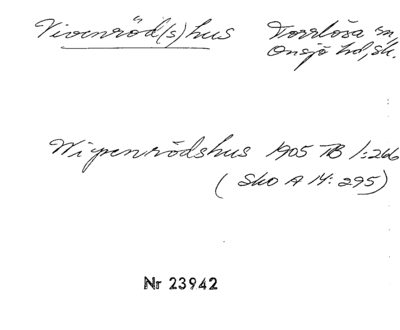 Vivenröd(s)hus Torrlösa sn,
Onsjö hd, Sk.
Wipenrödshus 1905 TB 1:266
(Sko A 14: 295)
Nr 23942